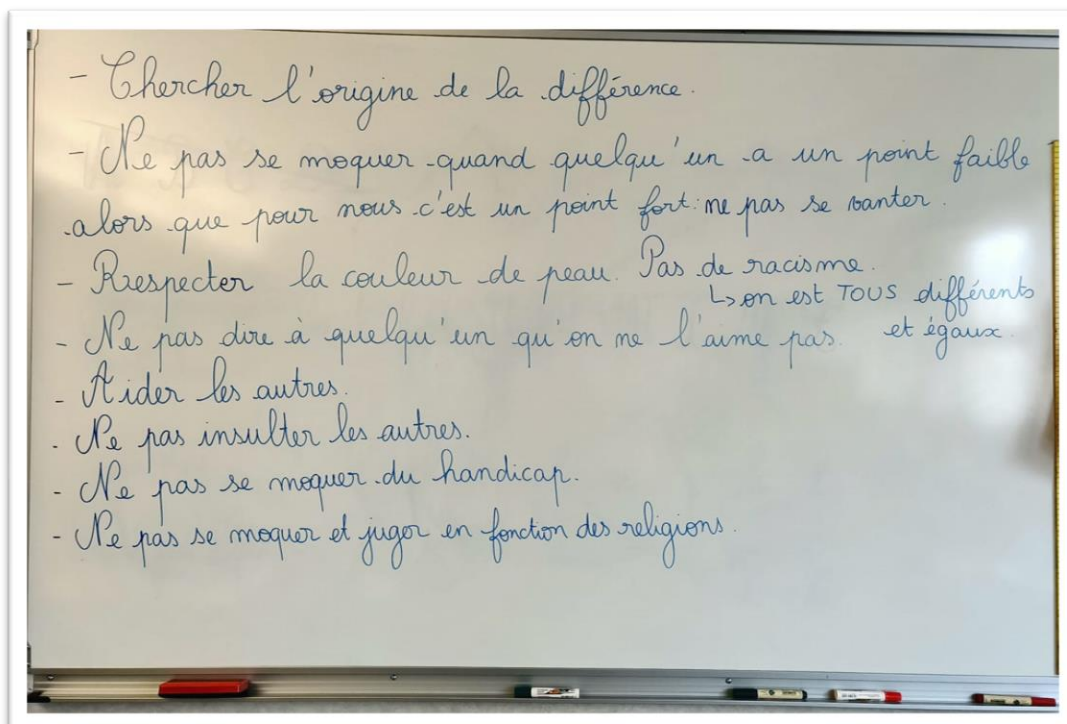 - Chercher l'origine de la différence.
- Ne pas se moquer quand quelqu'un a un point faible
alors que pour nous c'est un point fort : ne pas se vanter.
- Respecter la couleur de peau. Pas de racisme.
↳ on est TOUS différents
et égaux.
- Ne pas dire à quelqu'un qu'on ne l'aime pas.
- Aider les autres.
- Ne pas insulter les autres.
- Ne pas se moquer du handicap.
- Ne pas se moquer et juger en fonction des religions.